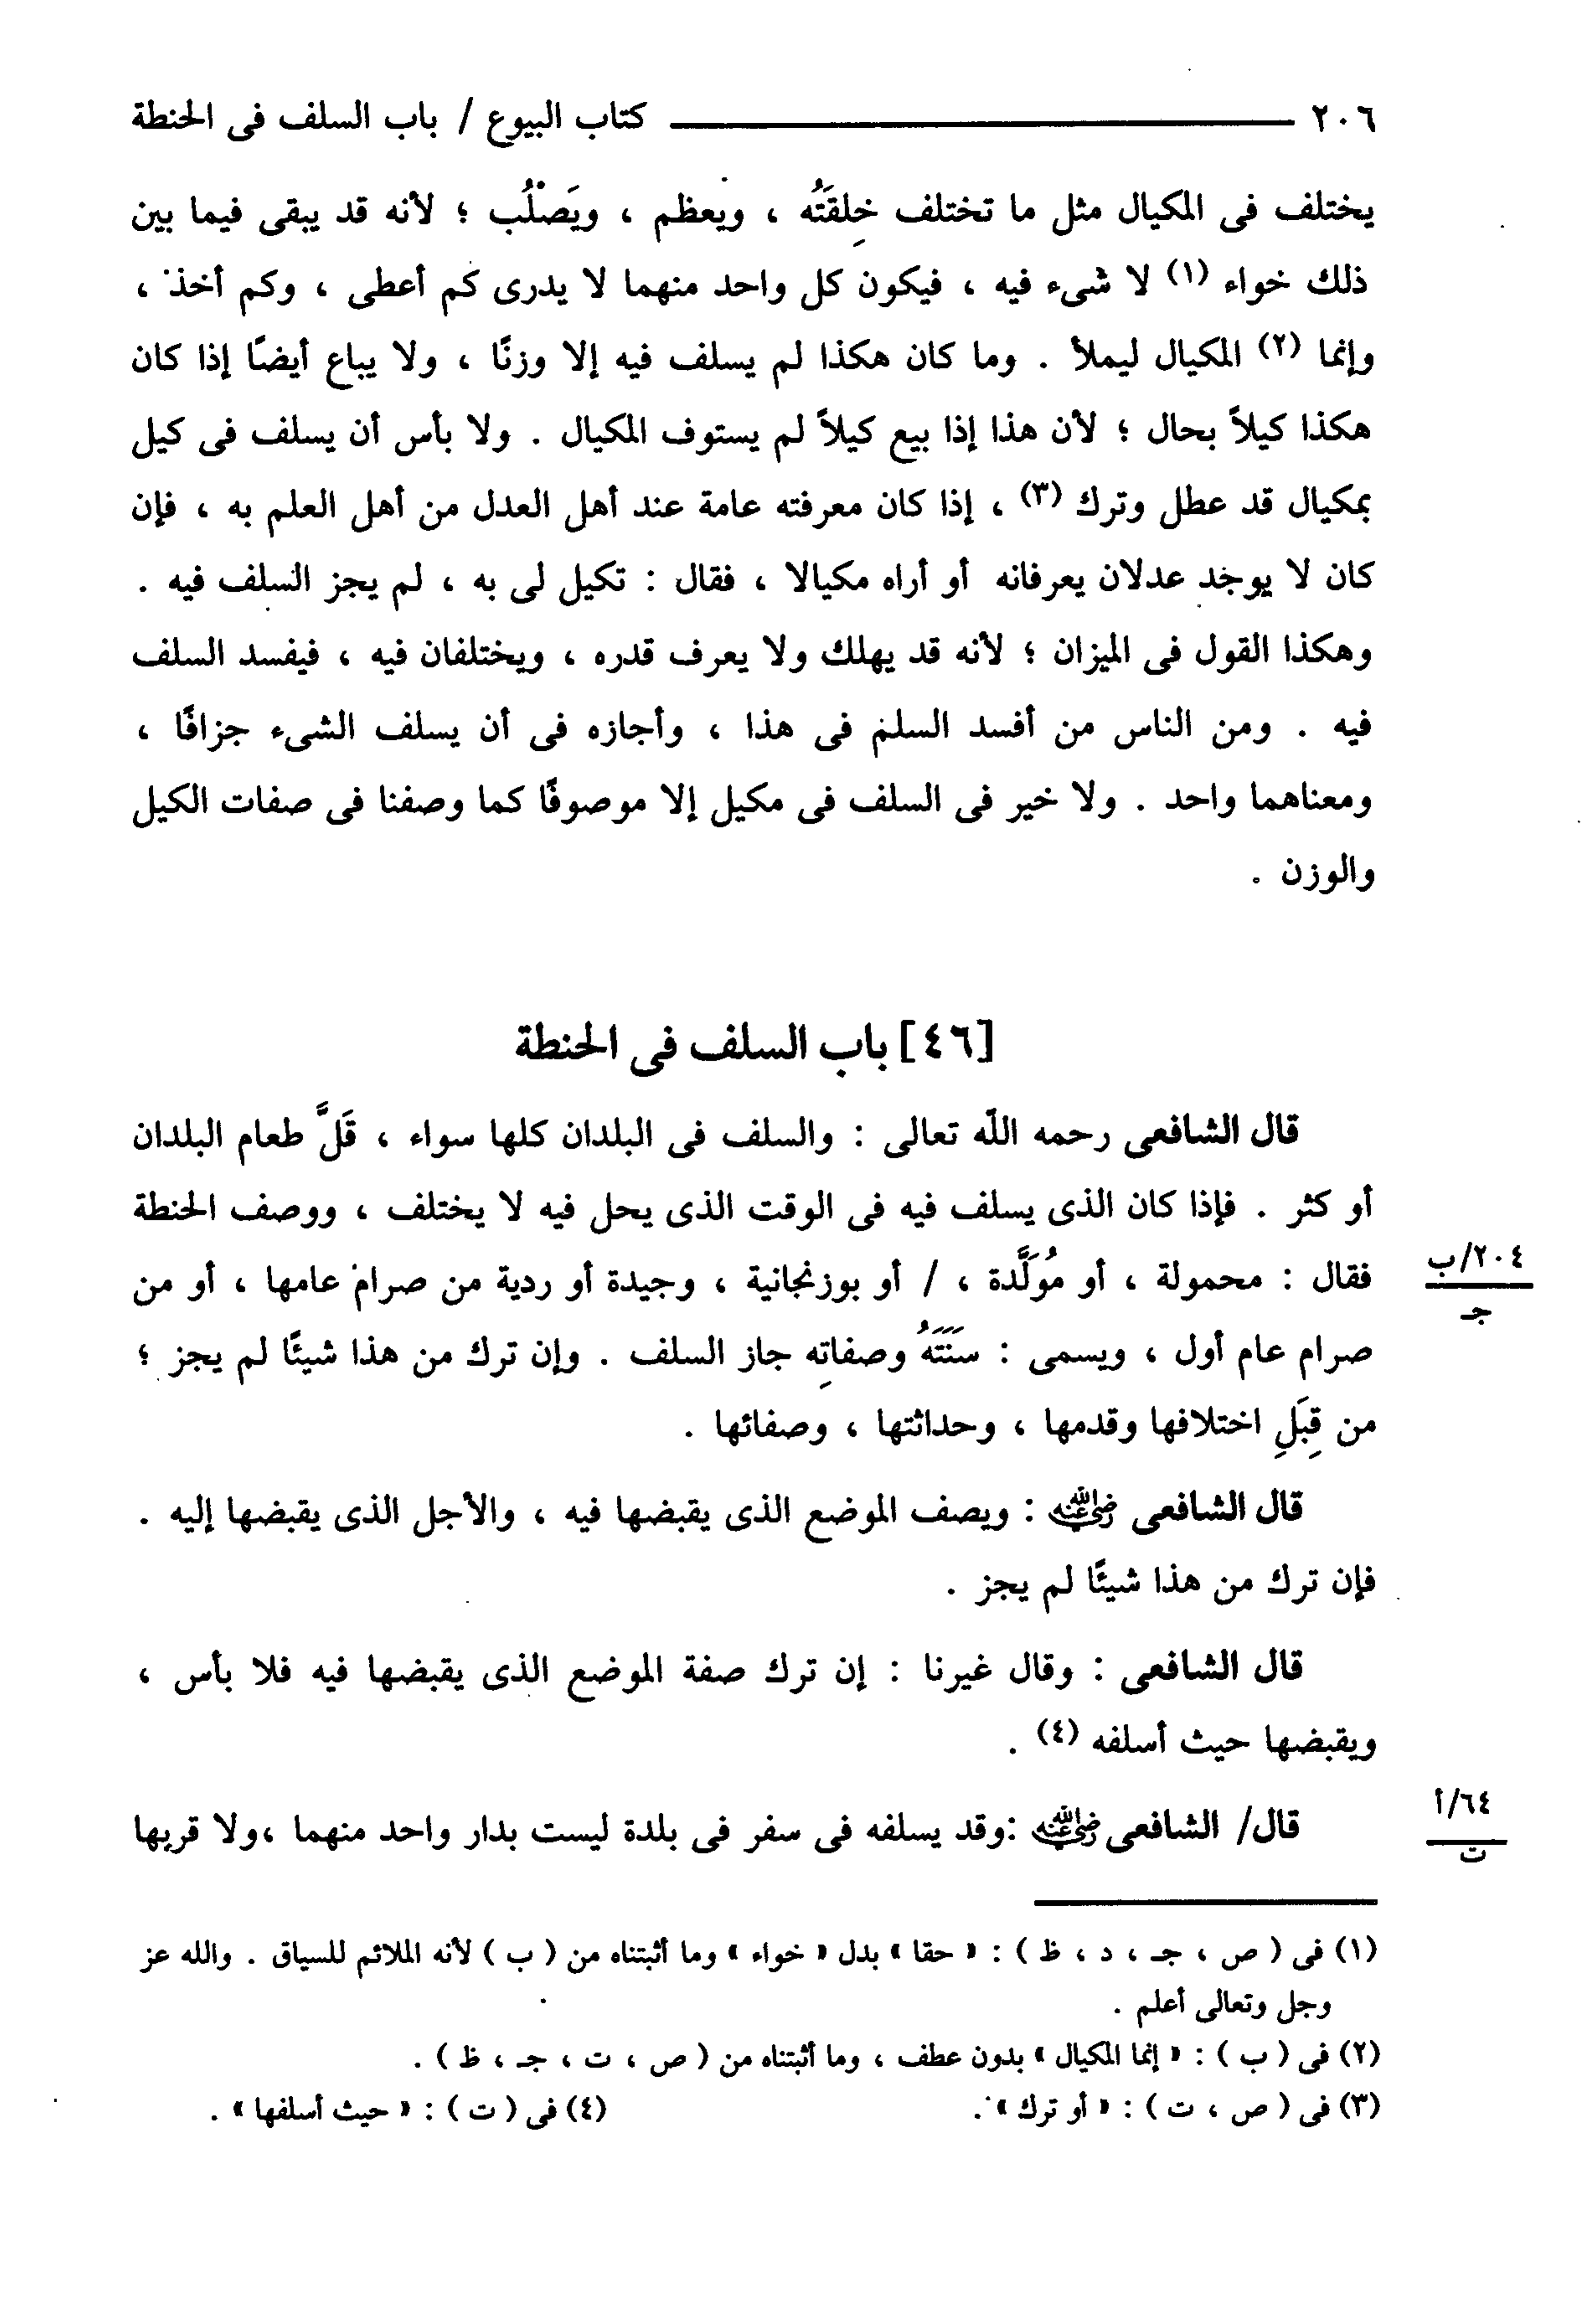 ٢٠٦ ــــــ كتاب البيوع / باب السلف فى الحنطة
يختلف فى المكيال مثل ما تختلف خِلقَتُه ، ويعظم ، ويَصْلُب ؛ لأنه قد يبقى فيما بين
ذلك خواء (١) لا شىء فيه ، فيكون كل واحد منهما لا يدرى كم أعطى ، وكم أخذ ،
وإنما (٢) المكيال ليملأ . وما كان هكذا لم يسلف فيه إلا وزنًا ، ولا يباع أيضًا إذا كان
هكذا كيلاً بحال ؛ لأن هذا إذا بيع كيلاً لم يستوف المكيال . ولا بأس أن يسلف فى كيل
بمكيال قد عطل وترك (٣) ، إذا كان معرفته عامة عند أهل العدل من أهل العلم به ، فإن
كان لا يوجد عدلان يعرفانه أو أراه مكيالا ، فقال : تكيل لى به ، لم يجز السلف فيه .
وهكذا القول فى الميزان ؛ لأنه قد يهلك ولا يعرف قدره ، ويختلفان فيه ، فيفسد السلف
فيه . ومن الناس من أفسد السلم فى هذا ، وأجازه فى أن يسلف الشىء جزافًا ،
ومعناهما واحد . ولا خير فى السلف فى مكيل إلا موصوفًا كما وصفنا فى صفات الكيل
والوزن .
[٤٦] باب السلف فى الحنطة
قال الشافعى رحمه اللّه تعالى : والسلف فى البلدان كلها سواء ، قَلَّ طعام البلدان
أو كثر . فإذا كان الذى يسلف فيه فى الوقت الذى يحل فيه لا يختلف ، ووصف الحنطة
فقال : محمولة ، أو مُوَلَّدة ، / أو بوزنجانية ، وجيدة أو ردية من صرام عامها ، أو من
٢٠٤/ب
جـ
صرام عام أول ، ويسمى : سَنَتَهُ وصفاتِه جاز السلف . وإن ترك من هذا شيئًا لم يجز ؛
من قِبَلِ اختلافها وقدمها ، وحداثتها ، وصفائها .
قال الشافعى رضي الله عنه : ويصف الموضع الذى يقبضها فيه ، والأجل الذى يقبضها إليه .
فإن ترك من هذا شيئًا لم يجز .
قال الشافعى : وقال غيرنا : إن ترك صفة الموضع الذى يقبضها فيه فلا بأس ،
ويقبضها حيث أسلفه (٤) .
قال/ الشافعى رضي الله عنه :وقد يسلفه فى سفر فى بلدة ليست بدار واحد منهما ،ولا قربها
٦٤/أ
ت
(١) فى ( ص ، جـ ، د ، ظ ) : « حقا » بدل « خواء » وما أثبتناه من ( ب ) لأنه الملائم للسياق . والله عز
وجل وتعالى أعلم .
(٢) فى ( ب ) : « إنما المكيال » بدون عطف ، وما أثبتناه من ( ص ، ت ، جـ ، ظ ) .
(٣) فى ( ص ، ت ) : « أو ترك » . (٤) فى ( ت ) : « حيث أسلفها » .